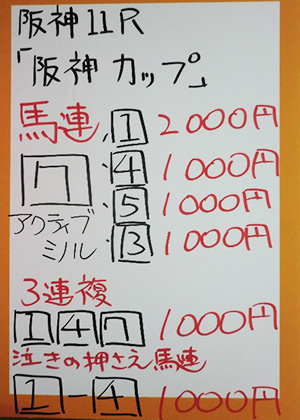 阪神11R
「阪神カップ」
馬連 1 2000円
7 4 1000円
アクティブ 5 1000円
ミノル 3 1000円
3連複
1 4 7 1000円
泣きの押さえ馬連
1-4 1000円